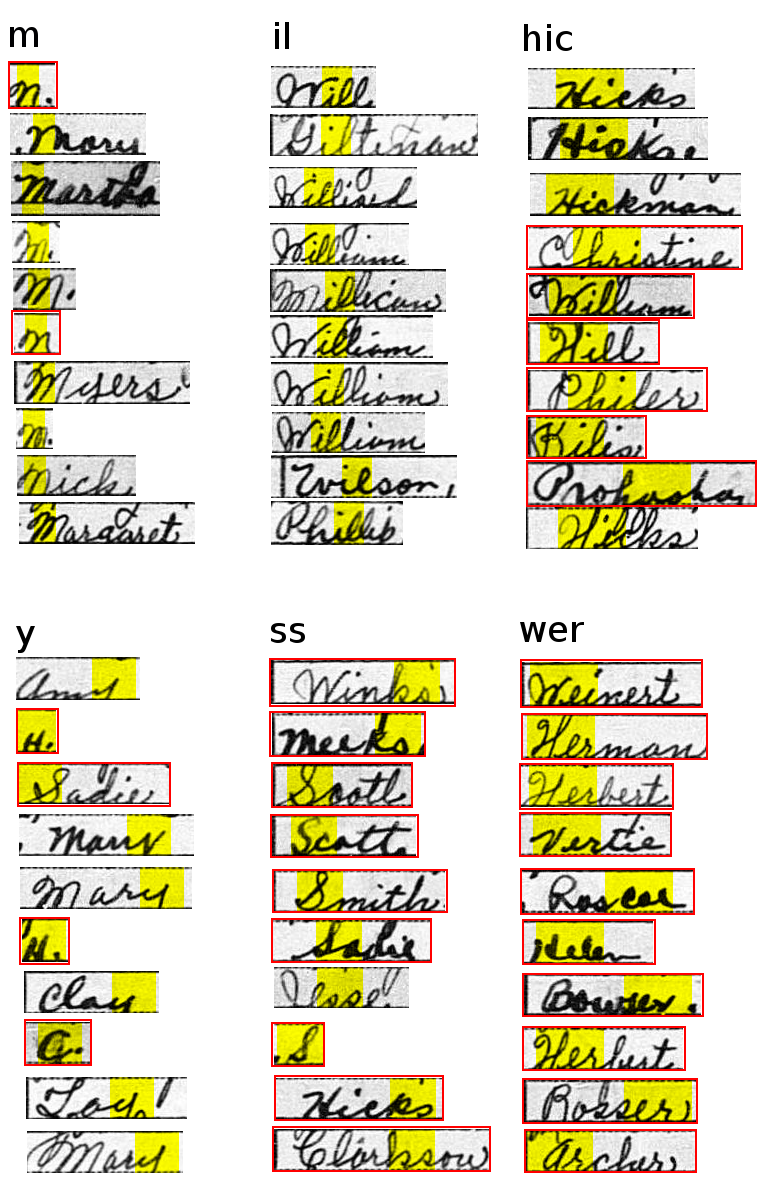 m
N.
Mary
Martha
M.
M.
N
Myers
M.
Nick
Margaret
il
Will
Giltinan
Willised
William
Millican
William
William
William
Wilson,
Phillip
hic
Hicks
Hicks.
Hickman
Christine
William
Hill
Philer
Kilis
Prohaska
Hicks
y
Amy
H.
Sadie
Mary
Mary
H.
Clay
A.
Loy
Mary
ss
Winks
Meeks
Scott
Scott
Smith
Sadie
Jesse
S
Hicks
Clarkson
wer
Weinert
Herman
Herbert
Vertie
Roscoe
Helen
Bowser
Herbert
Rosser
Archer